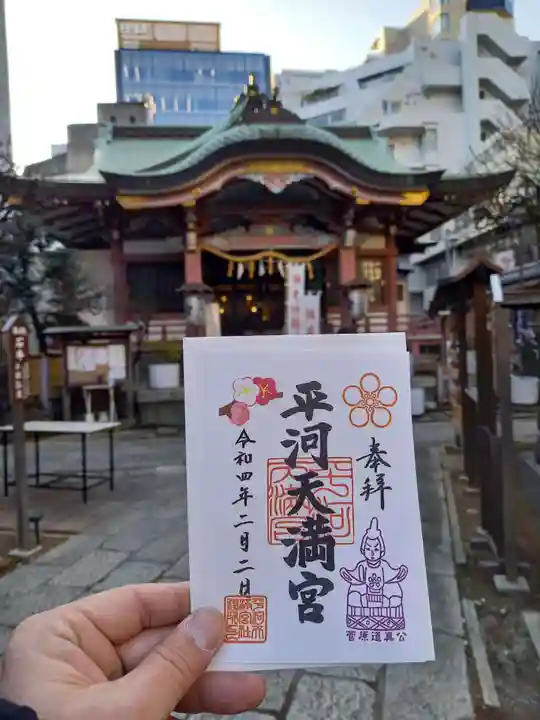 奉拝
平河天満宮
令和四年二月二日
菅原道真公